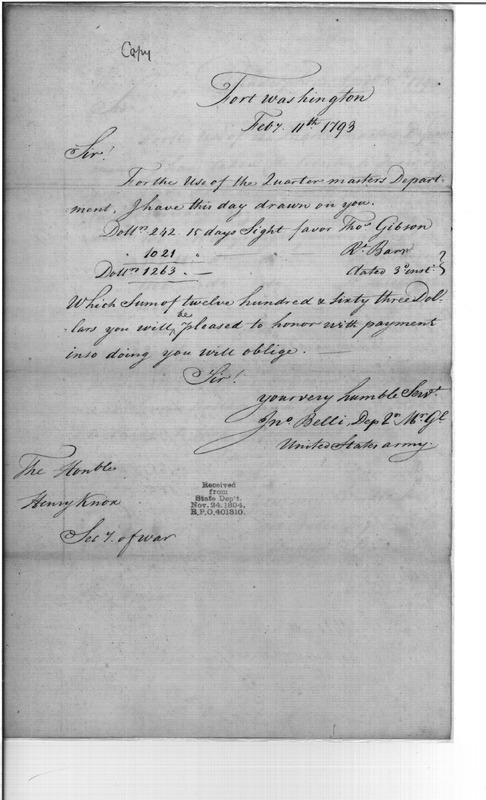 Copy
Fort Washington
Feby. 11th 1793
Sir!
For the Use of the Quarter masters Depart-
ment, I have this day drawn on you.
Dollrs 242 15 days Sight favor Thos Gibson
" 1021 " Rt Barr
Dollrs 1263. — dated 3d inst. }
Which Sum of twelve hundred & sixty three Dol-
-lars you will be pleased to honor with payment
in so doing you will oblige. —
Sir!
your very humble Servt.
Jno. Belli, Dep Qr. Mr. Gl.
United States army.
The Honble
Henry Knox
Secy. of war
Received
from
State Dep't.
Nov. 24. 1894,
R.P.O. 401810.